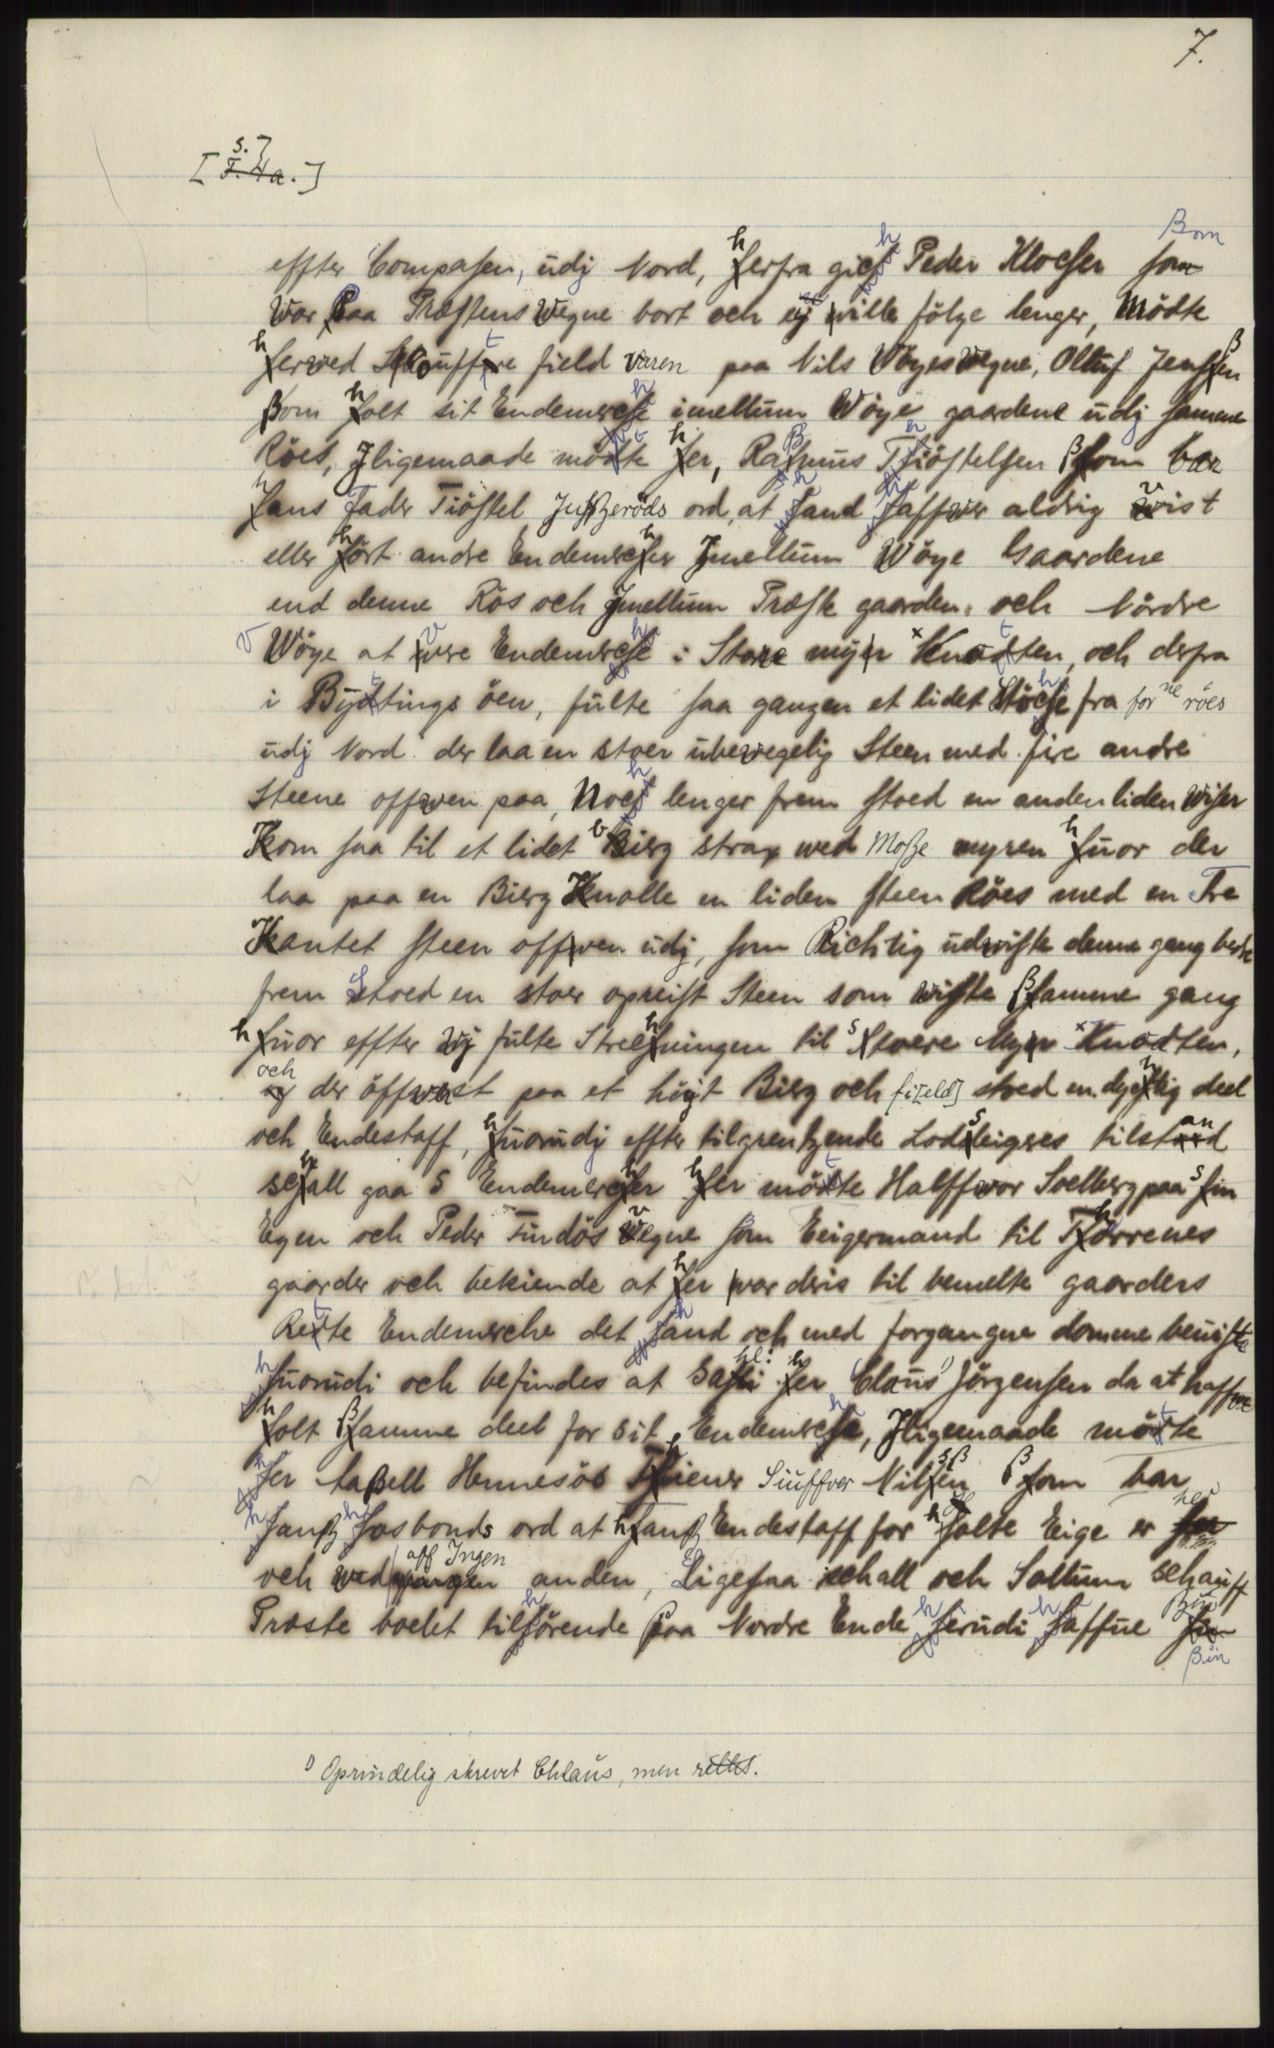 7.
[S.]
[F. Ha.]
effter Compasen, udj Nord, herfra gich Peder Klocher ßom
War Paa Præstens Wegne bort och ej wille fölge lenger, Mödte
herved field varen paa Nils Wöyes vegne, Olluf Jensßen
ßom holt sit Endemerche imellum Wöye gaardene udj samme
Röes, Jligemaade mötte her, Raßmus Tiöstelsen ßom bar
hans Fader Tiöstel Jußeröds ord, at hand haffver aldrig vist
eller hört andre Endemercher Jmellum Wöye Gaardene
end denne Rös och Jmellum Præste gaarden, och Nördre
Wöye at vere Endemerche i Store myr Knatten, och derfra
i Byttings öen, fulte saa gangen et lidet Stöche fra for ne röes
udj Nord der laa en stoer ubevegelig Steen med fire andre
Steene offven paa, Noch lenger frem stoed en anden liden Wiser
Kom saa til et lidet bierg strax wed Moße myren huor der
laa paa en Bierg Knolle en liden steen Röes med en Tre
Kantet steen offven udj, som Richtig udviste denne gang bedre
frem Stoed en stoer opreist Steen som wiste ßamme gang
huor effter Wj fulte Strechningen til Stoere Myr Knatten,
och der öffverst paa et högt Bierg och fi[eld] stoed en dygtig deel
och Endestaff, huorudj effter tilgrentzende Lodseigres tilstand
schall gaa 5 Endemercher her mötte Halffvor Soelberg paa sin
Egen och Peder Findös Vegne som Eeigermand til Thorrenes
gaarder och bekiende at her var deris til bemelte gaarders
Rette Endemerche det hand och med forgangne domme beviste
huorudi och befindes at Sahl: her Claus 1) Jörgensen da at haffve
holt ßamme deel for sit Endemerche, Jligemaade mötte
her Caßell Hennesös Thiener Siuffver Nilsßen ßom bar
hanß Hosbonds ord at hanß Endestaff for Holte Eige er her
och aff Ingen anden, Ligesaa schall och Soltum schauff
Præste boelet tilhörende Paa Nordre Ende herudi haffue Sin
1) Oprindelig skrevet Chlaus, men rettet.